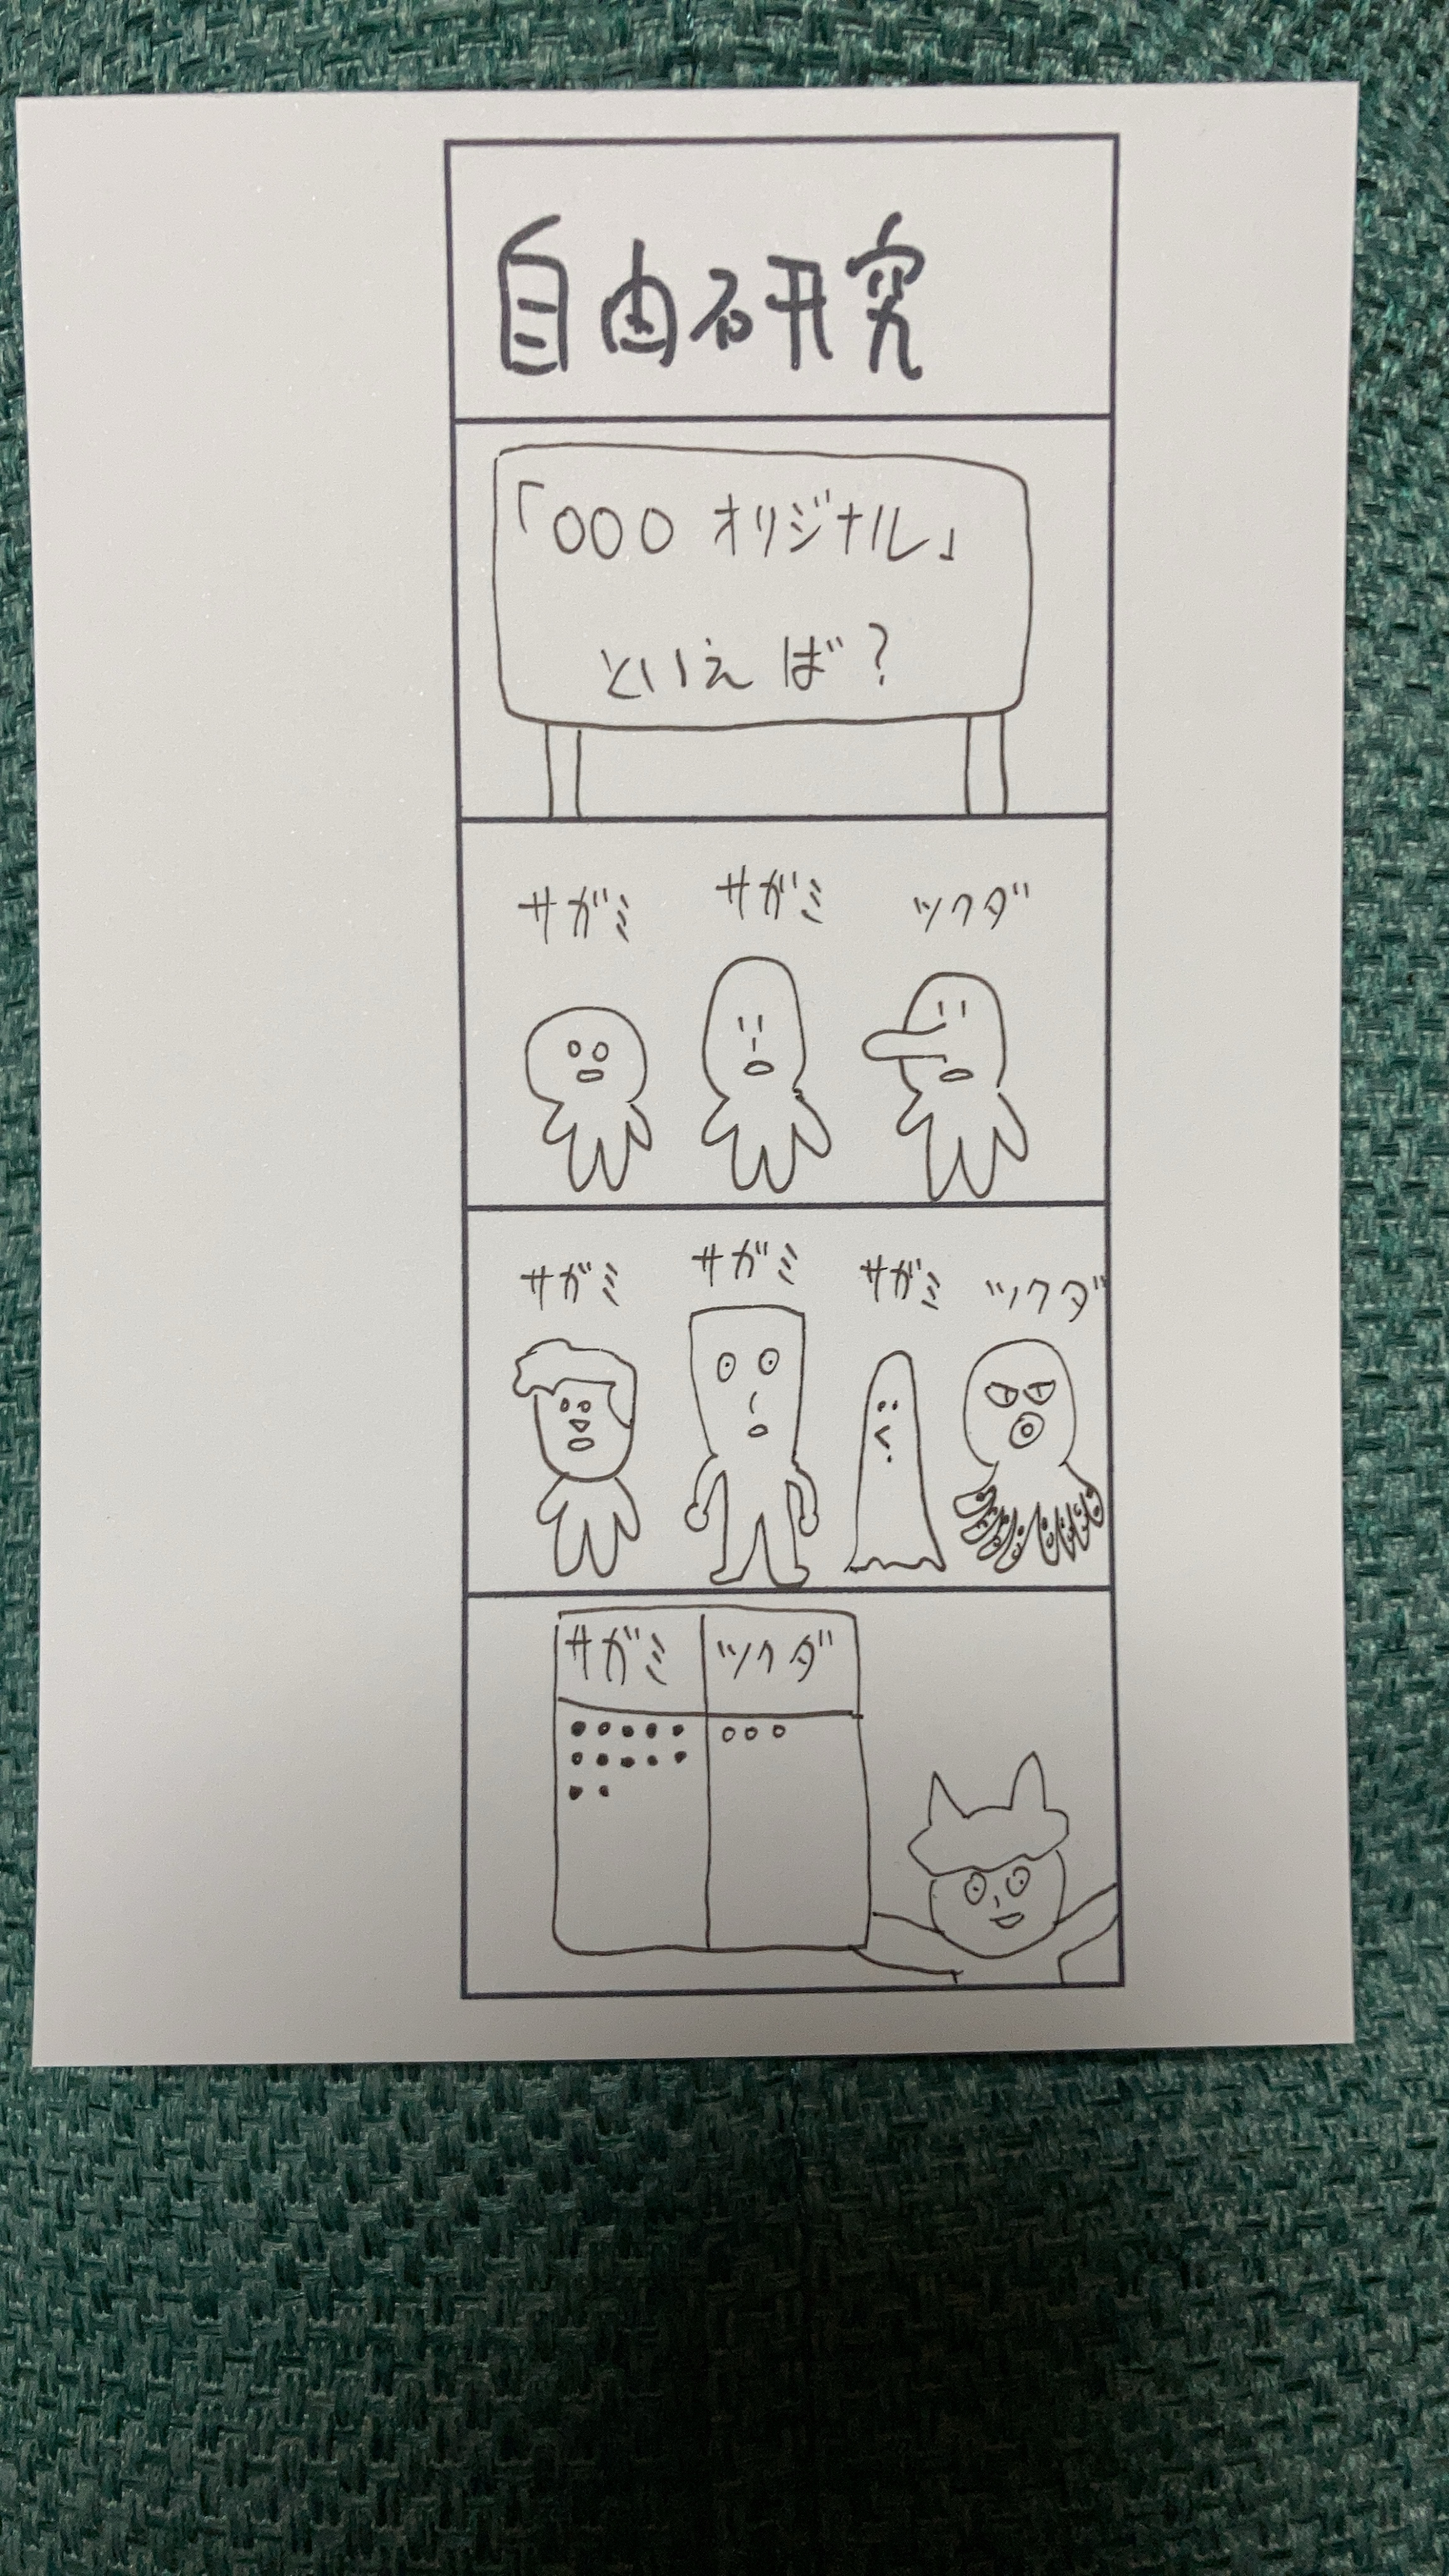 自由研究
「○○○ オリジナル」
といえば?
サガミ サガミ ツクダ
サガミ サガミ サガミ ツクダ
サガミ ツクダ